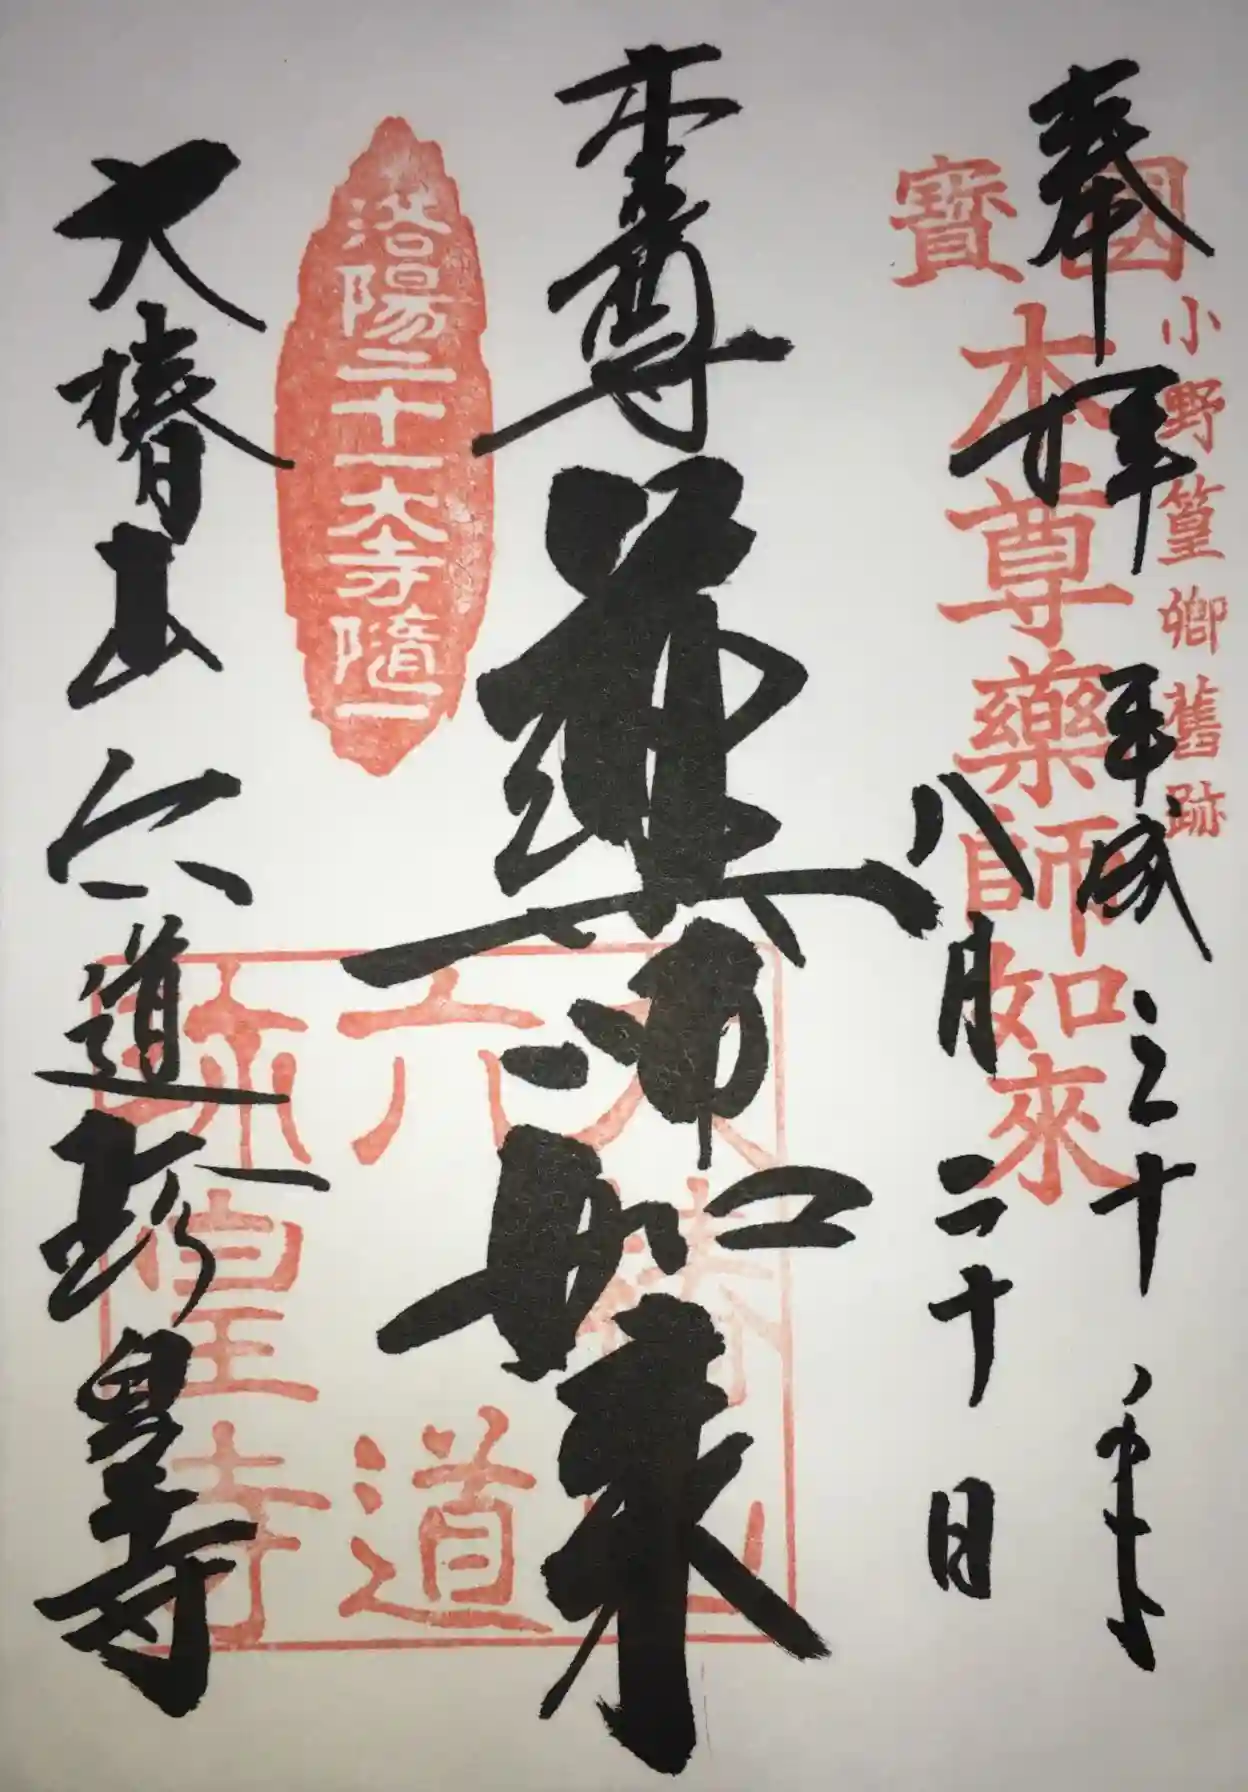 奉拝
平成三十年
八月二十日
小野篁卿舊跡
國寶
本尊藥師如來
本尊
薬師如来
洛陽二十一大寺随一
大椿山
六道
珍皇寺
大椿山 六道珍皇寺